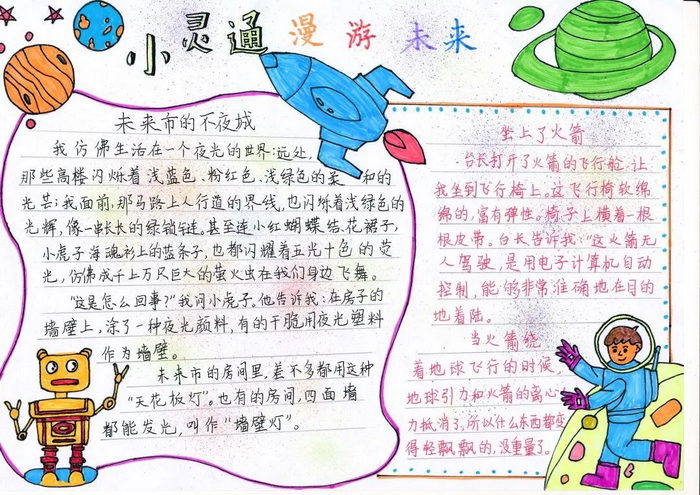 小灵通漫游未来
未来市的不夜城
我仿佛生活在一个夜光的世界:远处,
那些高楼闪烁着浅蓝色、粉红色、浅绿色的柔和的
光芒;我面前,那马路上人行道的界线,也闪烁着浅绿色的
光辉,像一串长长的绿锁链。甚至连小红蝴蝶结、花裙子,
小虎子海魂衫上的蓝条子,也都闪耀着五光十色的荧
光,仿佛成千上万尺巨大的萤火虫在我们身边飞舞。
“这是怎么回事?”我问小虎子,他告诉我:在房子的
墙壁上,涂了一种夜光颜料,有的干脆用夜光塑料
作为墙壁。
未来市的房间里,差不多都用这种
“天花板灯”。也有的房间,四面墙
都能发光,叫作“墙壁灯”。
坐上了火箭
台长打开了火箭的飞行舱,让
我坐到飞行椅上。这飞行椅软绵
绵的,富有弹性。椅子上横着一根
根皮带。台长告诉我:“这火箭无
人驾驶,是用电子计算机自动
控制,能够非常准确地在目的
地着陆。
当火箭绕
着地球飞行的时候,
地球引力和火箭的离心
力抵消了,所以什么东西都变
得轻飘飘的,没重量了。